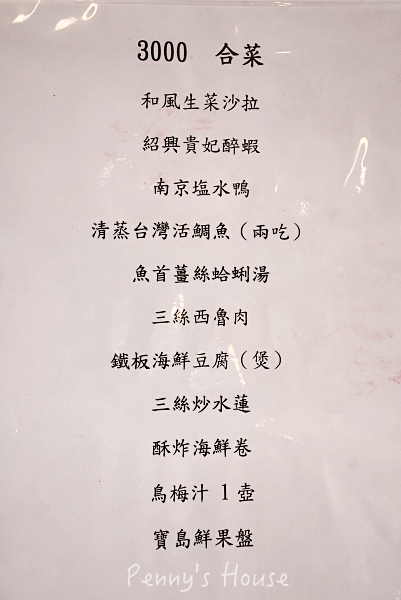 3000 合菜
和風生菜沙拉
紹興貴妃醉蝦
南京塩水鴨
清蒸台灣活鯛魚（兩吃）
魚首薑絲蛤蜊湯
三絲西魯肉
鐵板海鮮豆腐（煲）
三絲炒水蓮
酥炸海鮮卷
烏梅汁 1 壺
寶島鮮果盤
Penny's House